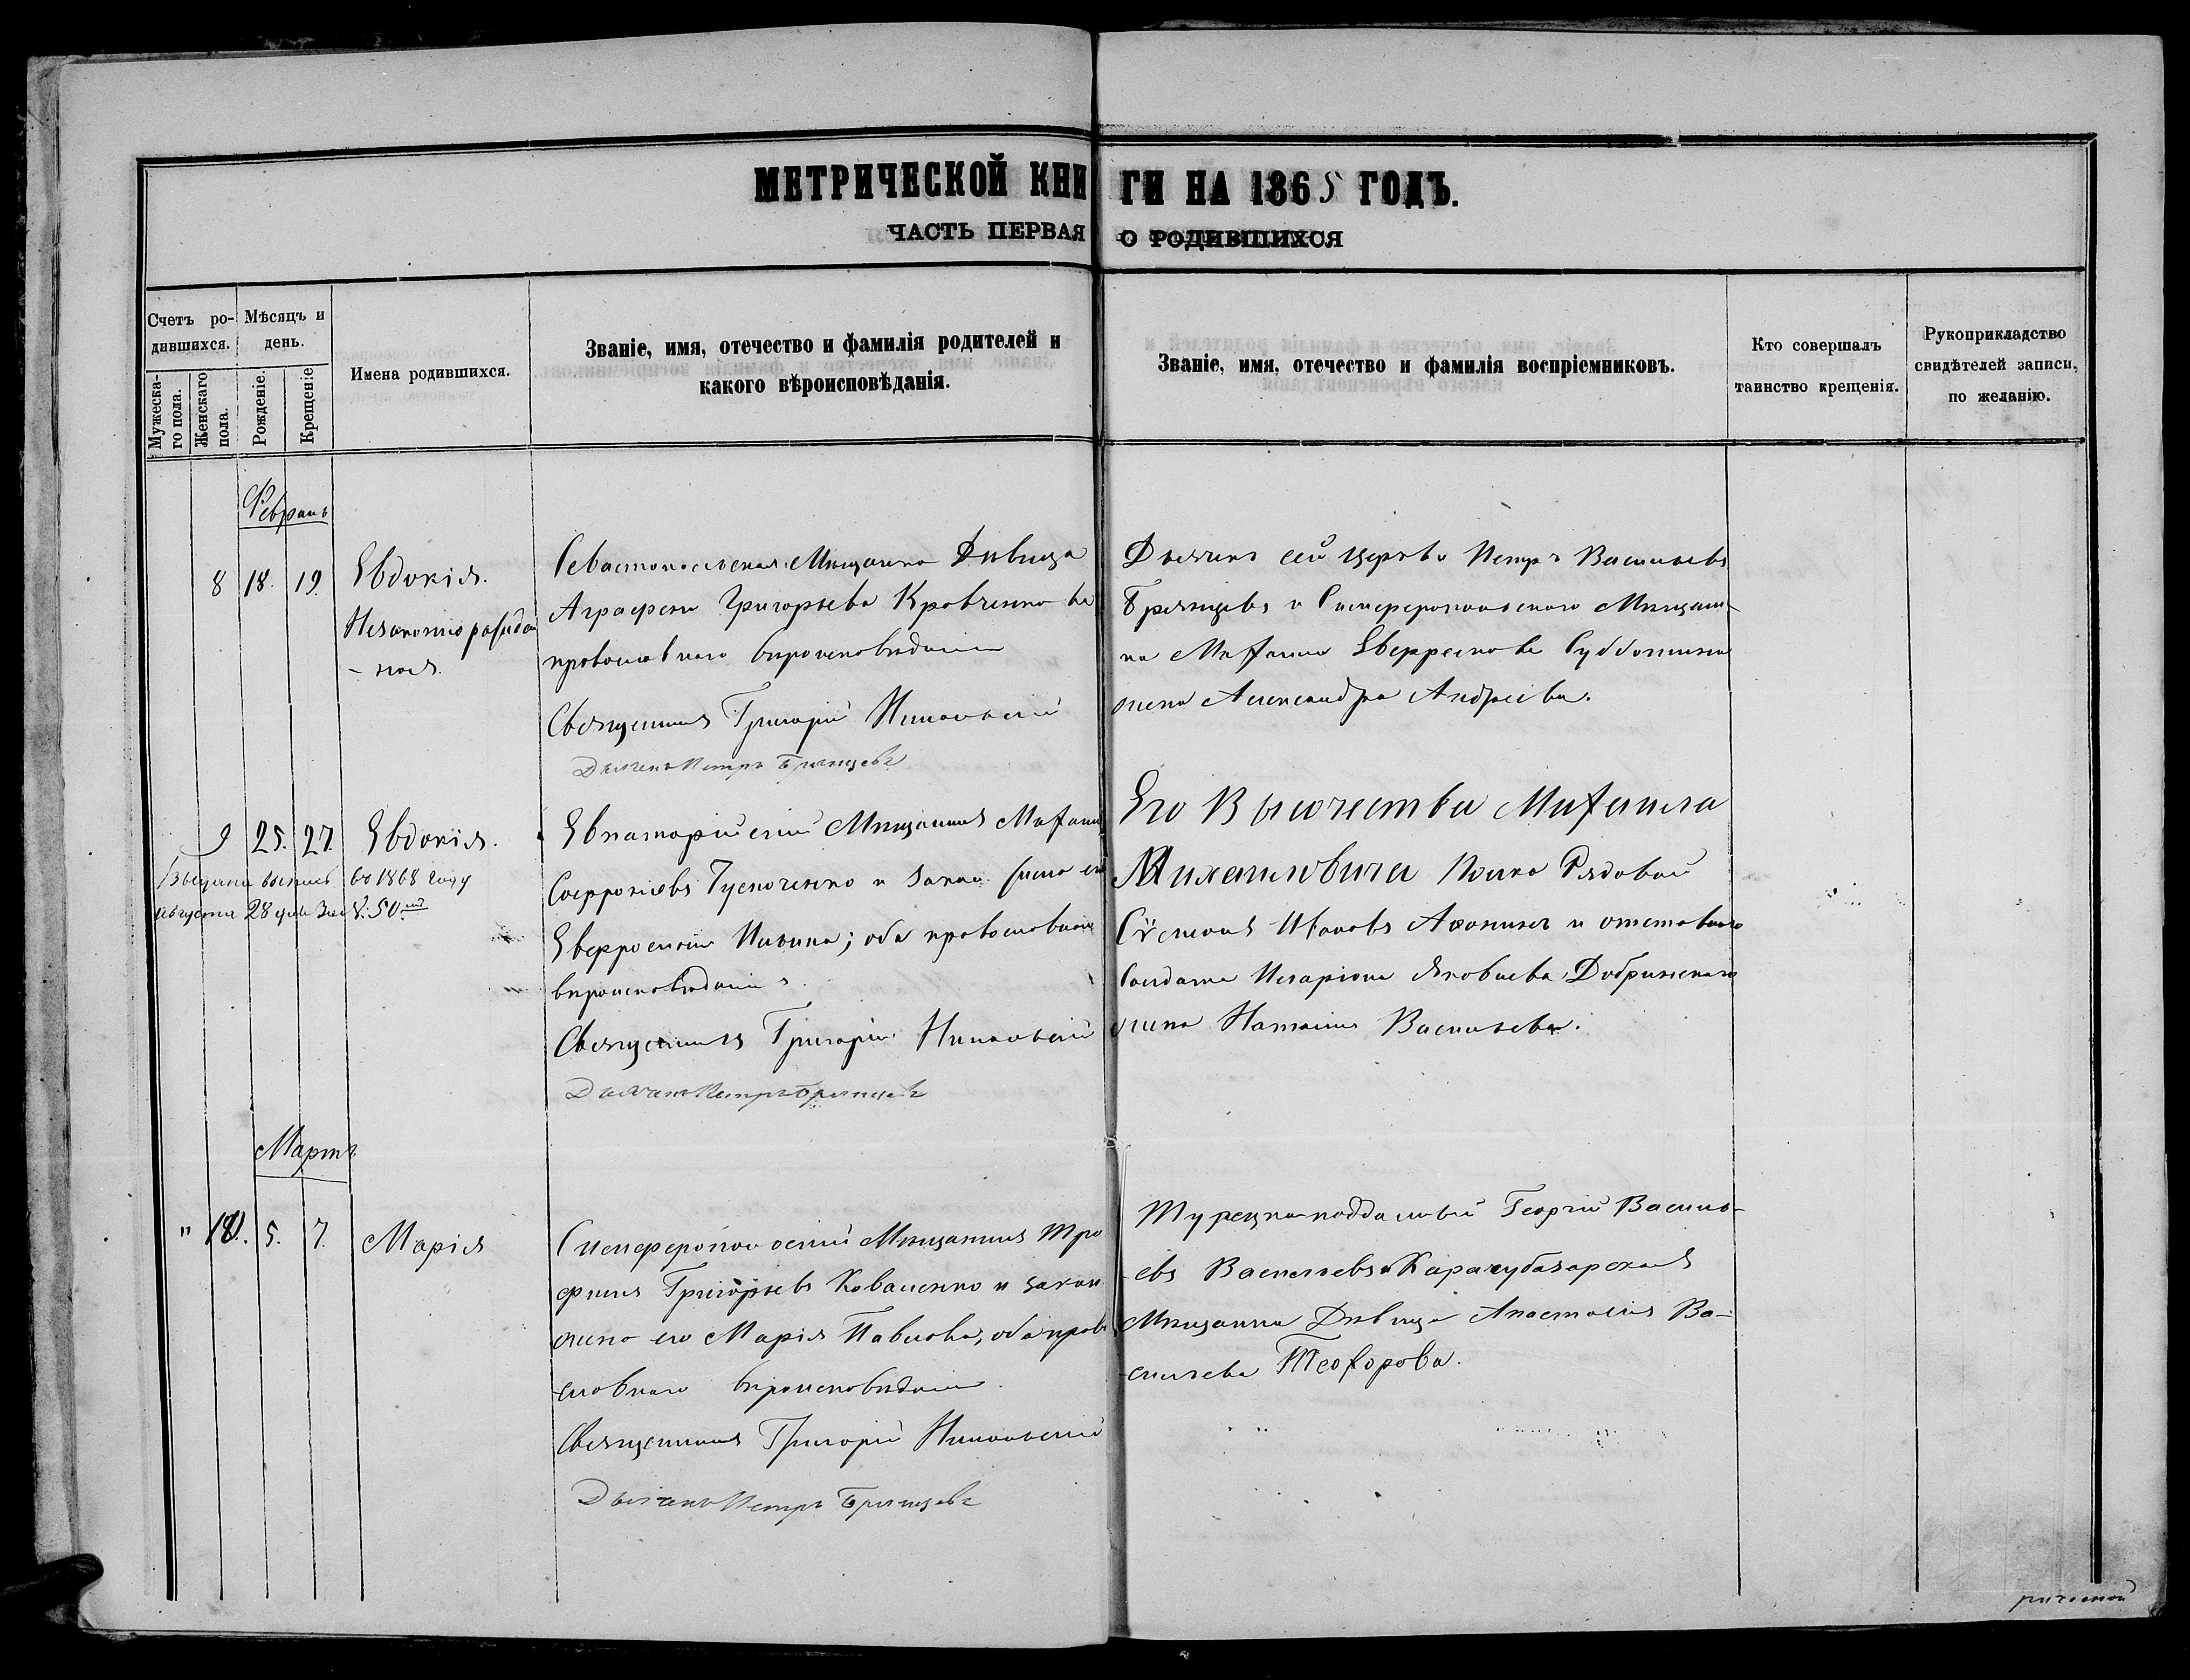 МЕТРИЧЕСКОЙ КНИГИ НА 1865 ГОДЪ.
ЧАСТЬ ПЕРВАЯ О РОДИВШИХСЯ
Счетъ родившихся.
Мужескаго пола.
Женскаго пола.
Мѣсяцъ и день.
Рожденіе.
Крещеніе
Имена родившихся.
Званіе, имя, отечество и фамилія родителей и
какого вѣроисповѣданія.
Званіе, имя, отечество и фамилія воспріемниковъ.
Кто совершалъ
таинство крещенія.
Рукоприкладство
свидѣтелей записи,
по желанію.
Февраль
8 18. 19. Евдокія.
Незаконнорожден
-ная.
Севастопольская Мѣщанка Дѣвица
Аграфена Григорьева Кровченкова
православнаго вѣроисповѣданія
Священникъ Григорій Никольскій
Дьячекъ Петръ Брянцевъ
Дьячекъ сей церкви Петръ Васильевъ
Брянцевъ и Симферопольского Мѣщан-
на Михаила Субботина
жена Александра Андреева.
9 25. 27. Евдокія.
Выдана выпись въ 1868 году
августа 28 дня За № 50.
Евпаторійскій Мѣщанинъ Михаилъ
Софроніевъ Гусаченко и закон. жена его
Евфросинія Ильина; оба православнаго
вѣроисповѣданія.
Священникъ Григорій Никольскій
Дьячекъ Петръ Брянцевъ
Его Высочества Михаила
Михаиловича Полка Рядовой
Сѵмеонъ Ивановъ Афонинъ и отставнаго
Солдата Иларіона Яковлева Добринскаго
жена Наталія Васильева.
Мартъ
" 10. 5. 7. Марія
Симферопольскій Мѣщанинъ Тро
фимъ Григорьевъ Коваленко и закон.
жена его Марія Павлова, оба право
славнаго вѣроисповѣданія.
Священникъ Григорій Никольскій
Дьячекъ Петръ Брянцевъ
Турецкоподданный Георгій Василь-
евъ Васильевъ и Карасубазарская
Мѣщанка Дѣвица Анастасія Ва-
сильева Теодорова.